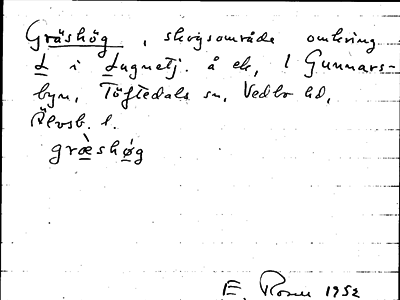 Gräshög, skogsområde omkring
L i Lugnetj. å ek, l Gunnars-
byn, Töftedals sn, Vedbo hd,
Älvsb. l.
græ̀shø̀g
E. Rosell 1952